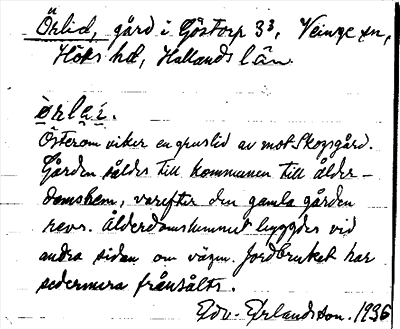 Örlid, gård i Göstorp 3³, Veinge sn,
Höks hd, Hallands län.
ørlai.
Österom viker en gruslid av mot Skogsgård.
Gården såldes till kommunen till ålder-
domshem, varefter den gamla gården
revs. Ålderdomshemmet byggdes vid
andra sidan om vägen. Jordbruket har
sedermera frånsålts.
Edv. Erlandsson. 1936